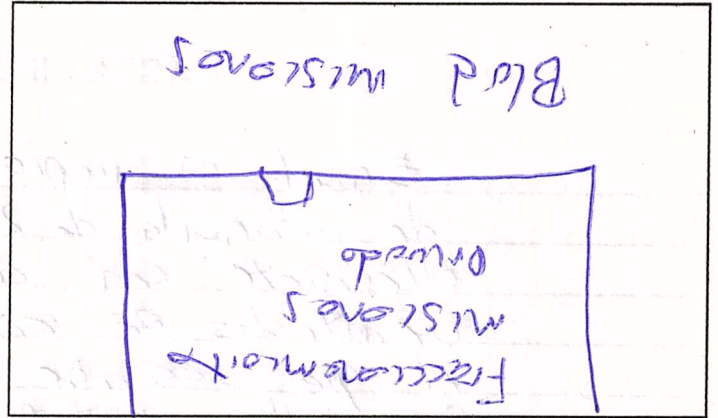 Fraccionamiento
misiones
Dorado
Blvd misiones